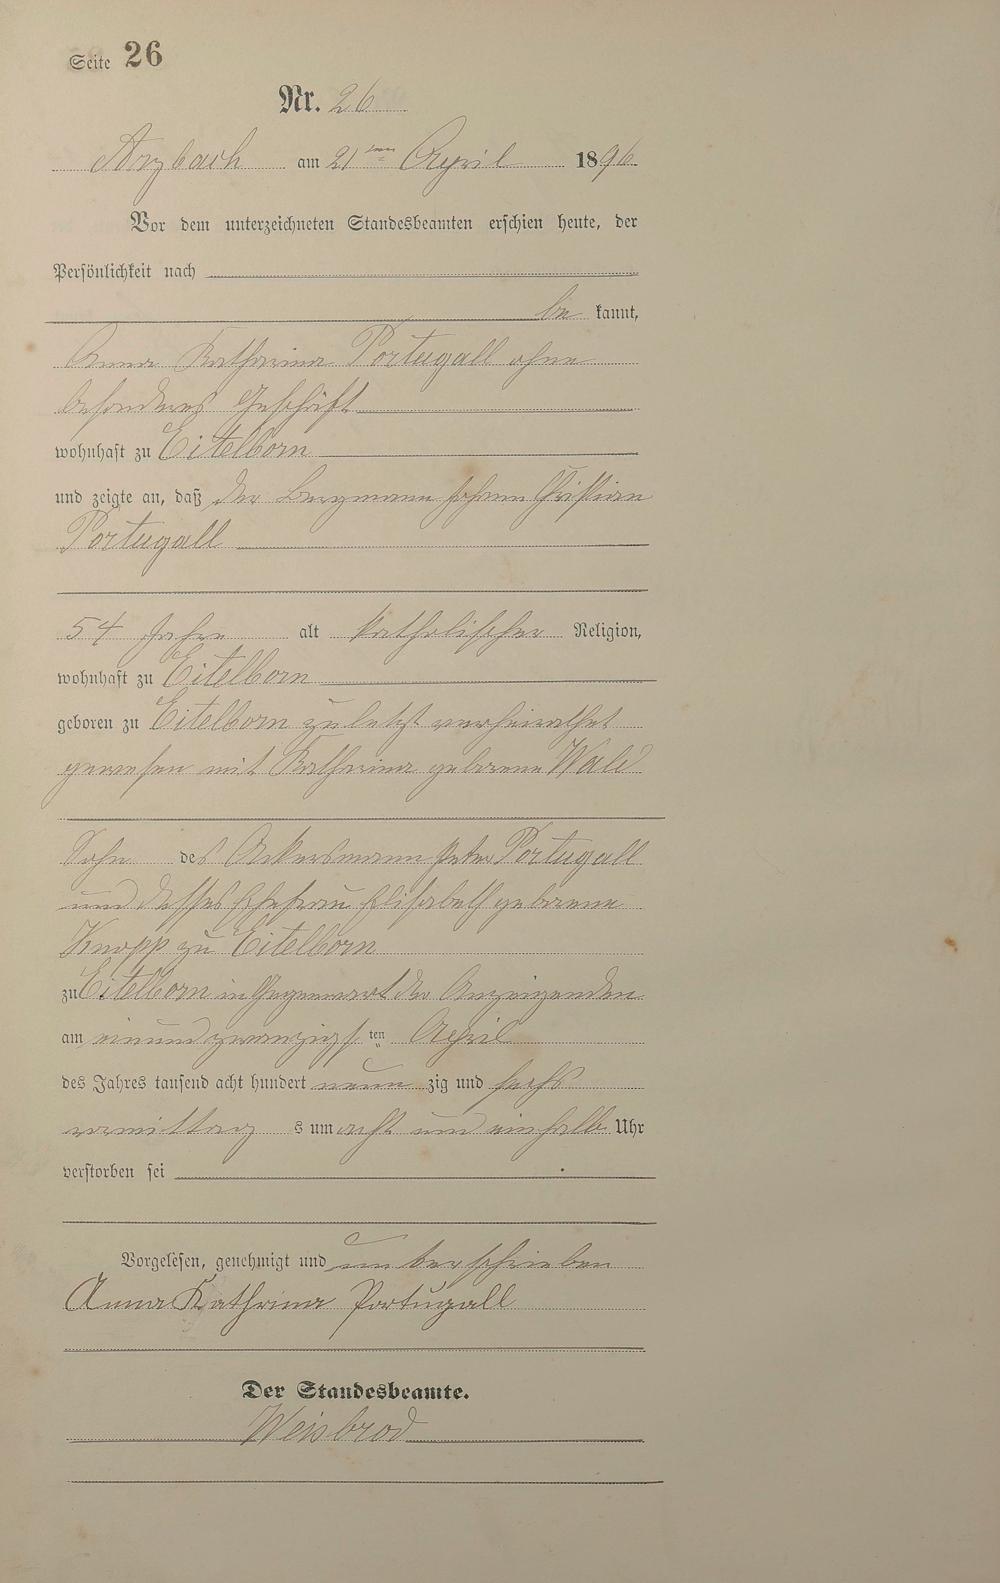 Seite 26
Nr. 26
Arzbach am 21ten April 1896
Vor dem unterzeichneten Standesbeamten erschien heute, der
Persönlichkeit nach
be kannt,
Anna Katharina Portugall ohne
besonderes Geschäft
wohnhaft zu Eitelborn
und zeigte an, daß der Bergmann Johann Christian
Portugall
54 Jahre alt katholischer Religion,
wohnhaft zu Eitelborn
geboren zu Eitelborn zuletzt verheirathet
gewesen mit Katharina geborene Wald
Sohn des Ackersmann Peter Portugall
und dessen Ehefrau Elisabeth geborene
Knopp zu Eitelborn
zu Eitelborn in Gegenwart der Anzeigenden
am einundzwanzigsten April
des Jahres tausend acht hundert neun zig und sechs
vormittag s um acht und einhalb Uhr
verstorben sei
Vorgelesen, genehmigt und unterschrieben
Anna Kathrina Portugall
Der Standesbeamte.
Weisbrod